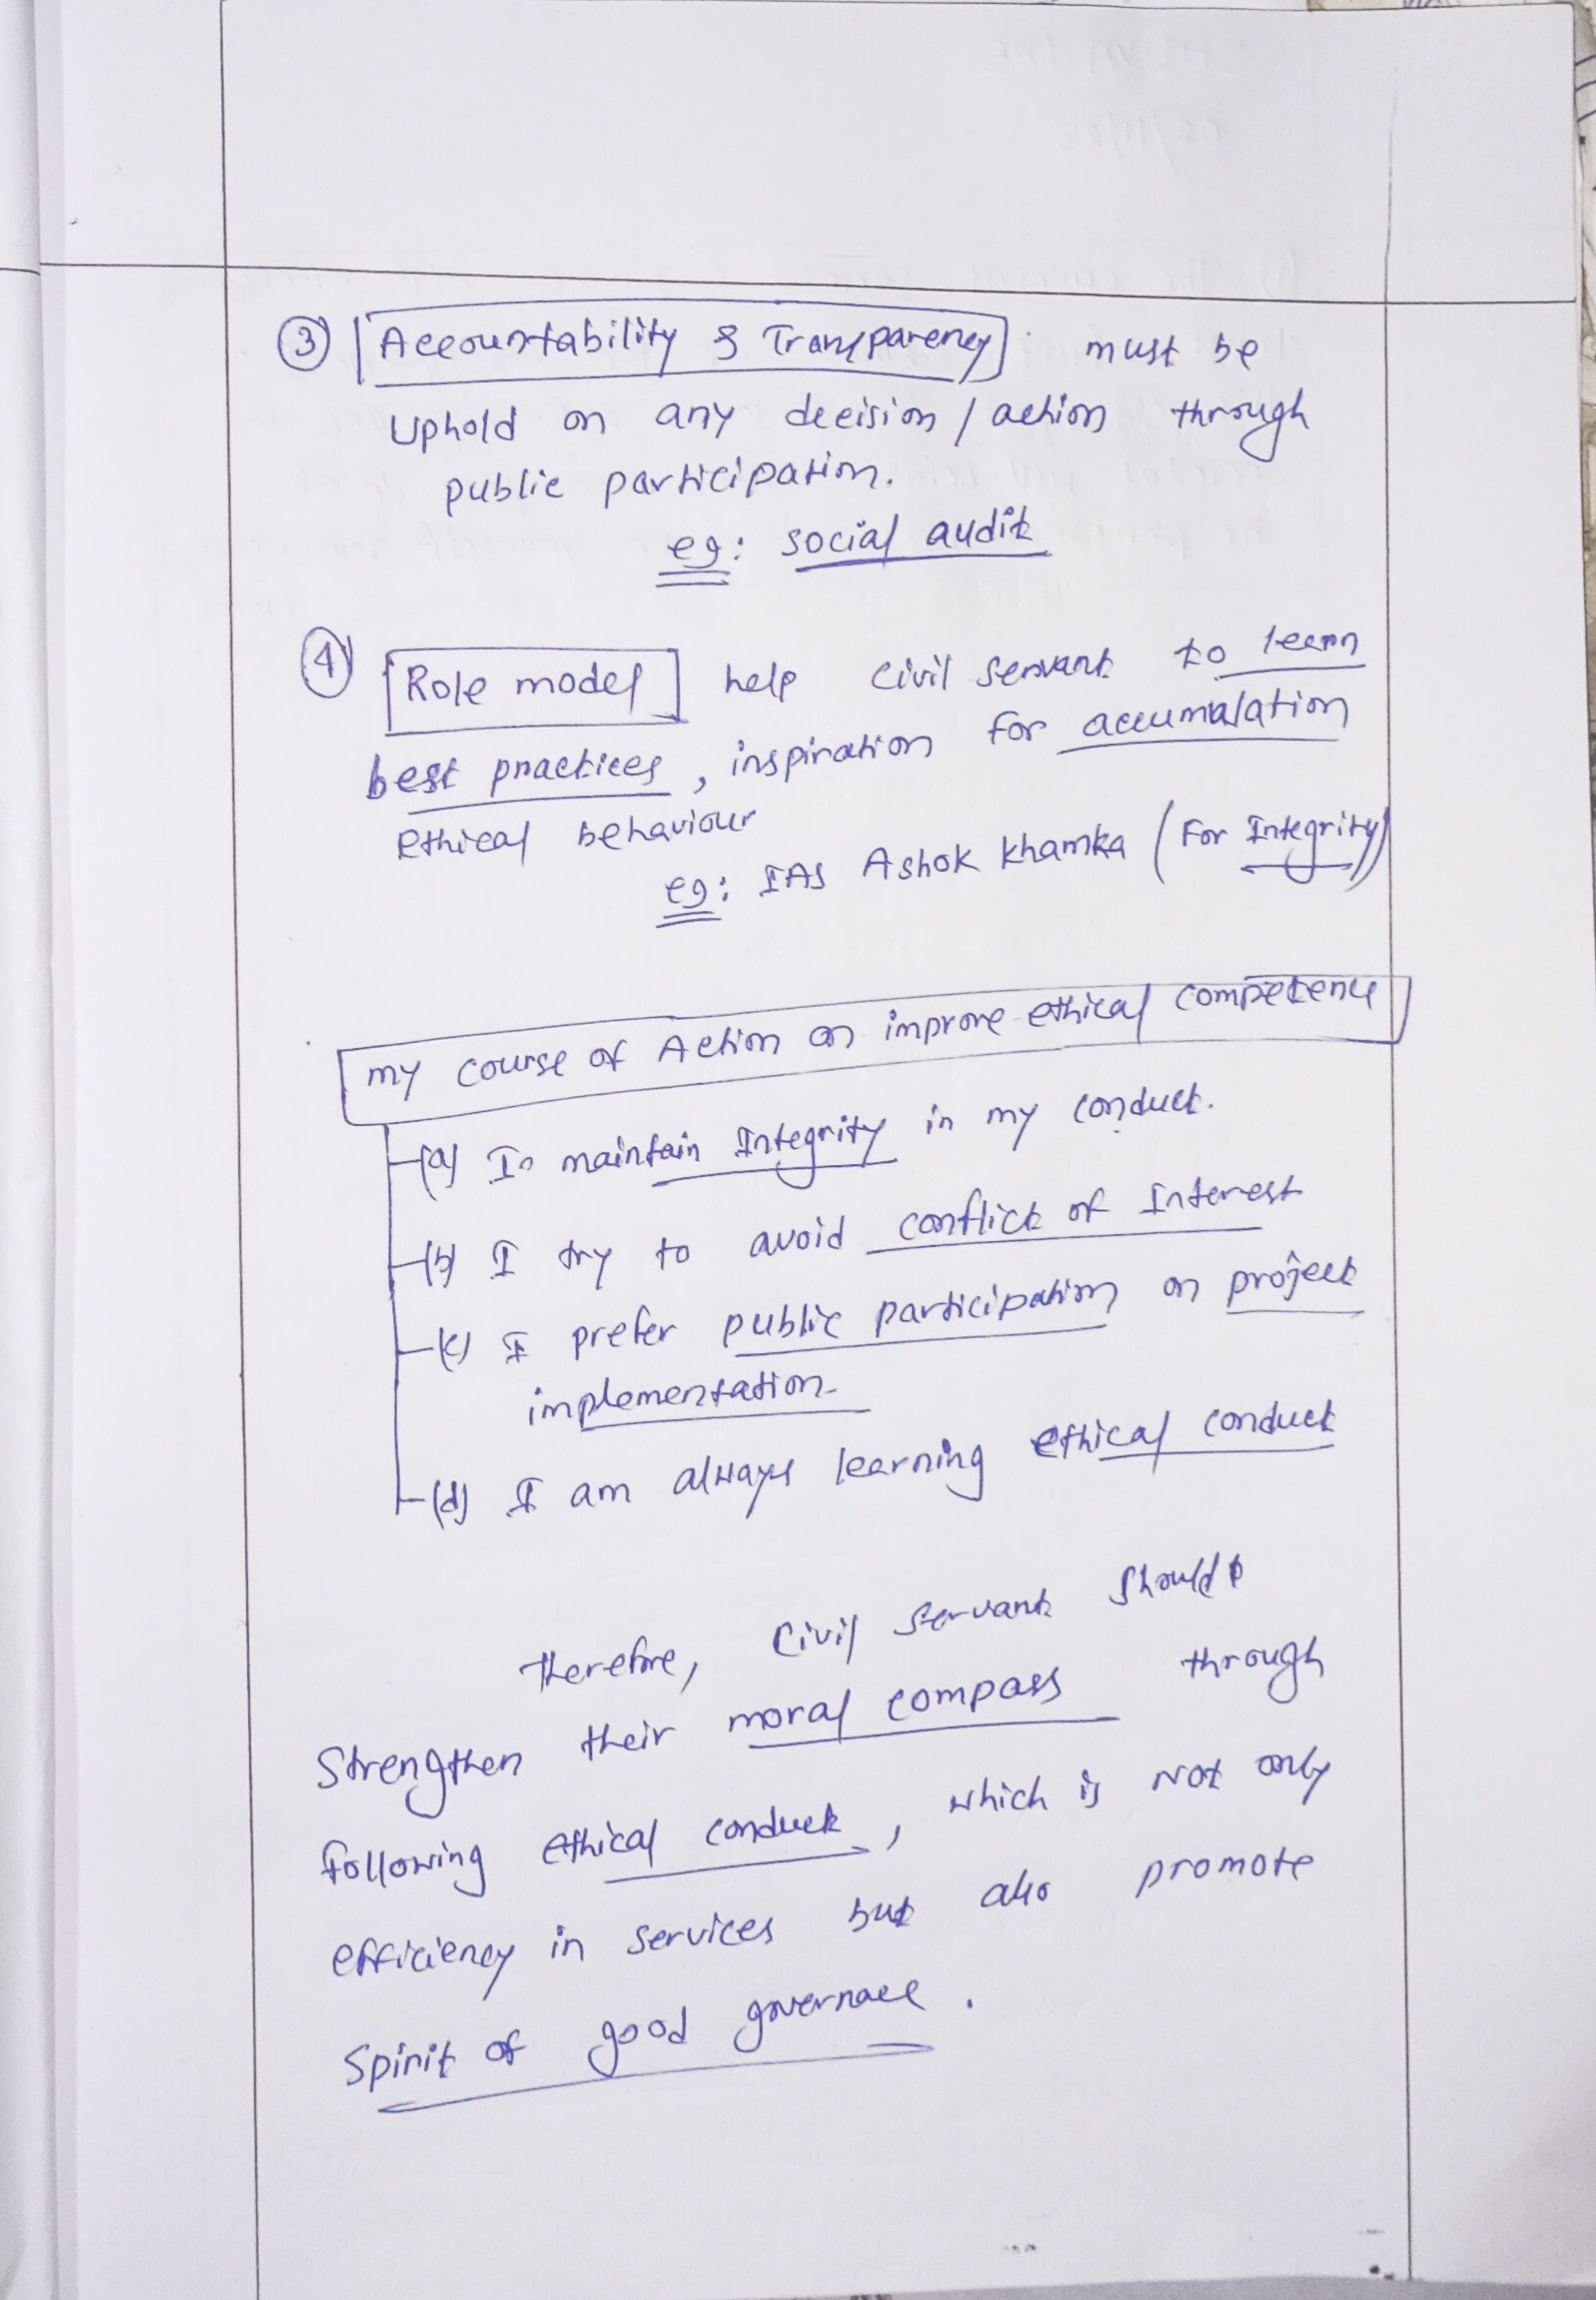 ③ Accountability & Transparency must be
uphold on any decision / action through
public participation.
eg: social audit
④ Role model help civil servant to learn
best practices, inspiration for accumalation
ethical behaviour
eg: IAS Ashok Khamka (For Integrity)
my course of Action on improve ethical competence
(a) I maintain Integrity in my conduct.
(b) I try to avoid conflict of Interest
(c) I prefer public participation on project
implementation.
(d) I am always learning ethical conduct
Therefore, civil servant should
strengthen their moral compass through
following ethical conduct, which is Not only
efficiency in services but also promote
Spirit of good governace.